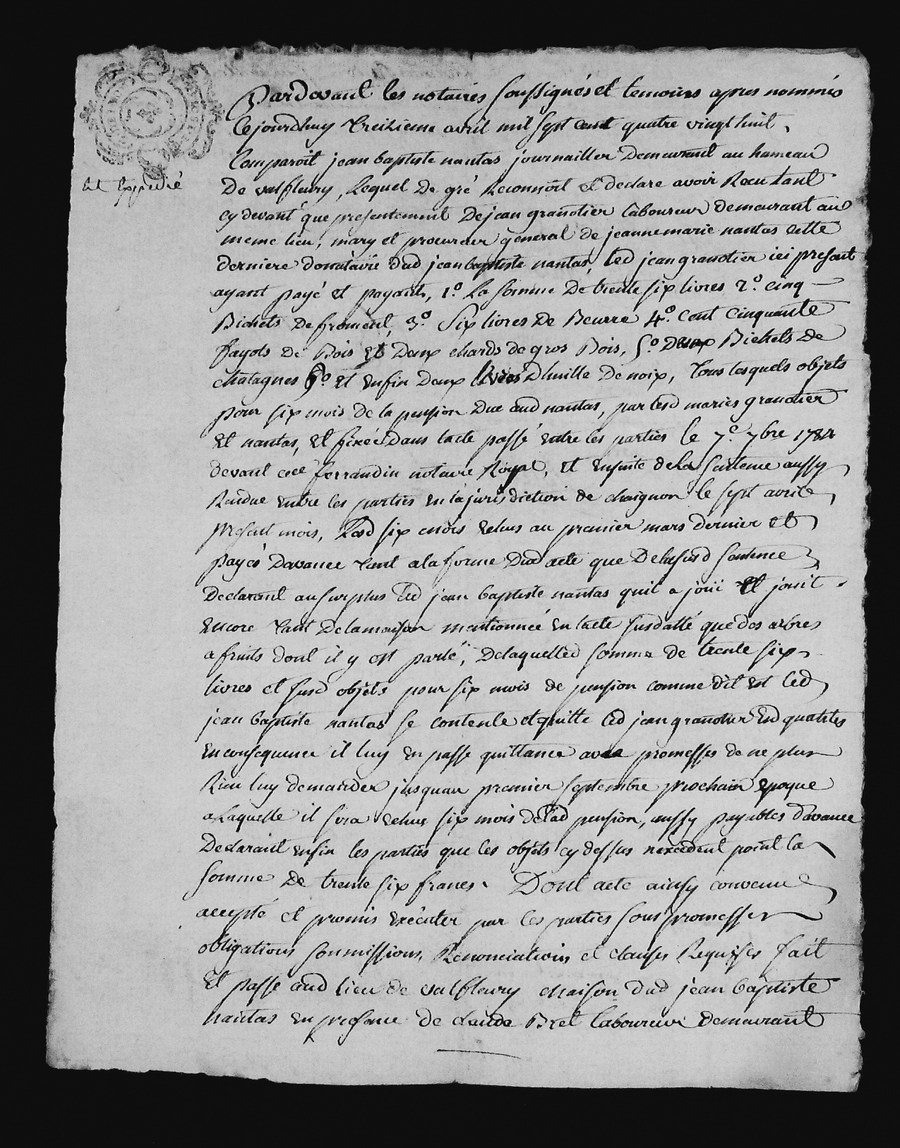 Pardevant les notaires soussignés et temoins apres nommés
Cejourdhuy treizieme avril mil sept cent quatre vingt huit.
Comparoit jean baptiste nantas journaillier demeurant au hameau
Est Expedié
De valfleury, Lequel De gré Reconnoit et declare avoir Recu tant
cy devant que presentement De jean granotier laboureur demeurant au
meme lieu, mary et procureur general de jeanne marie nantas cette
derniere donataire dud jean baptiste nantas, led jean granotier ici present
ayant payé et payant, 1º. La somme De trente six livres 2º. cinq
Bichets de froment, 3º. Six livres De Beurre 4º. cent cinquante
fagots de Bois et Deux chards de gros Bois, 5º. Deux Bichets De
chatagnes 6º et enfin Deux Dhuille De noix, Tous lesquels objets
pour six mois de la pension Due aud nantas, par lesd mariés granotier
et nantas, et fixée dans lacte passé entre les parties le 7º. 7bre 1784
devant me ferrandin notaire Royal, et ensuite de la sentence aussy
Rendue entre les parties en la jurisdiction de chaignon le sept avril
present mois, Lesd six mois echus au premier mars dernier et
payés davance tant a la forme Dud acte que De lasusd sentence
Declarant au surplus led jean baptiste nantas quil a joüi et joüit
encore tant De la maison mentionnée en lacte susdatté que des arbres
a fruits dont il y est parlé, De laquelled somme de trente six
livres et susd objets pour six mois de pension comme dit est led
jean baptiste nantas se contente et quitte led jean granotier Esd qualités
en consequence il luy en passe quittance avec promesses de ne plus
Rien luy demander jusquau premier septembre prochain epoque
a Laquelle il sera echus six mois de lad pension, aussy payables davance
Declarant enfin les parties que les objets cy dessus nexcedent point la
somme de trente six francs. Dont acte ainsy convenu
accepté et promis executer par les parties sous promesses
obligations soumissions, Renonciations et clauses Requises fait
et passé aud lieu de valfleury maison dud jean baptiste
nantas en presence de claude Brel laboureur demeurant